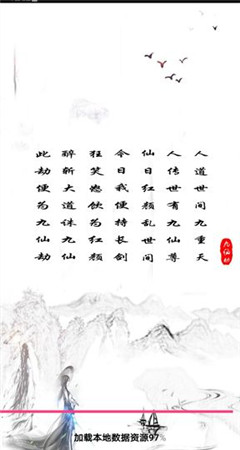 人道世间九重天
人传世有九仙尊
仙日红颜乱世间
今日我便持长剑
狂笑愁饮为红颜
醉斩大道诛九仙
此劫便为九仙劫
九仙劫
加载本地数据资源97